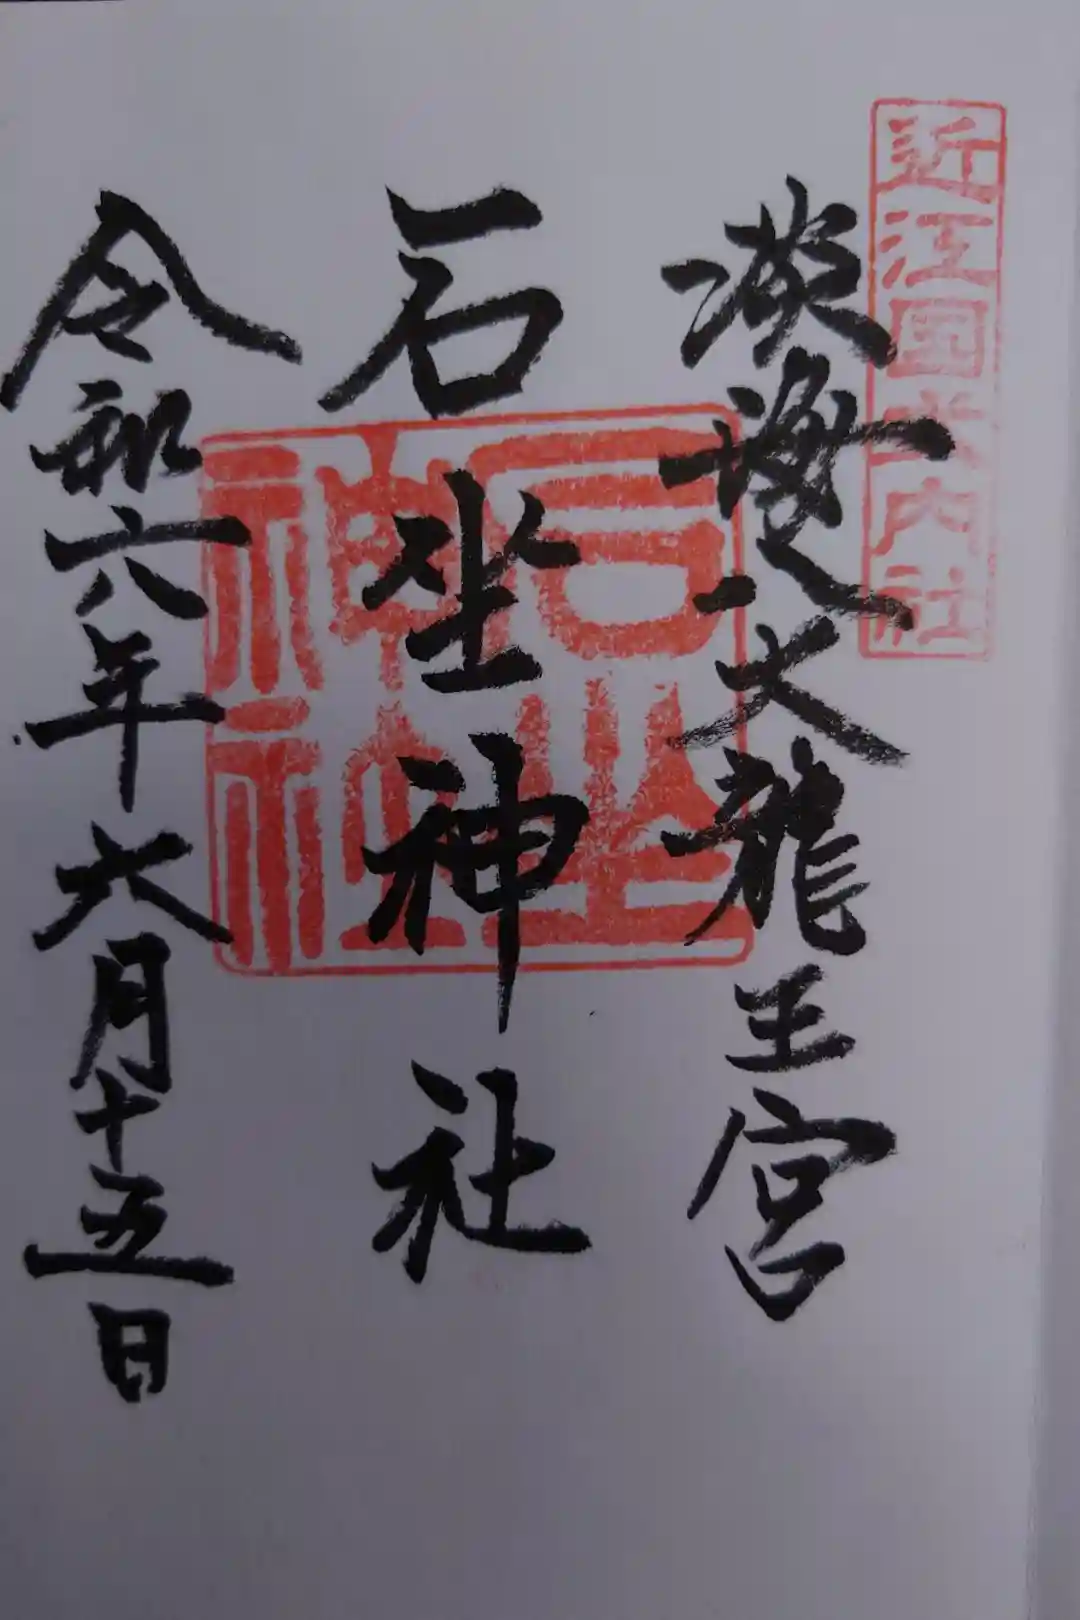 近江国式内社
淡海八大龍王宮
石坐神社
石坐神社
令和六年六月十五日